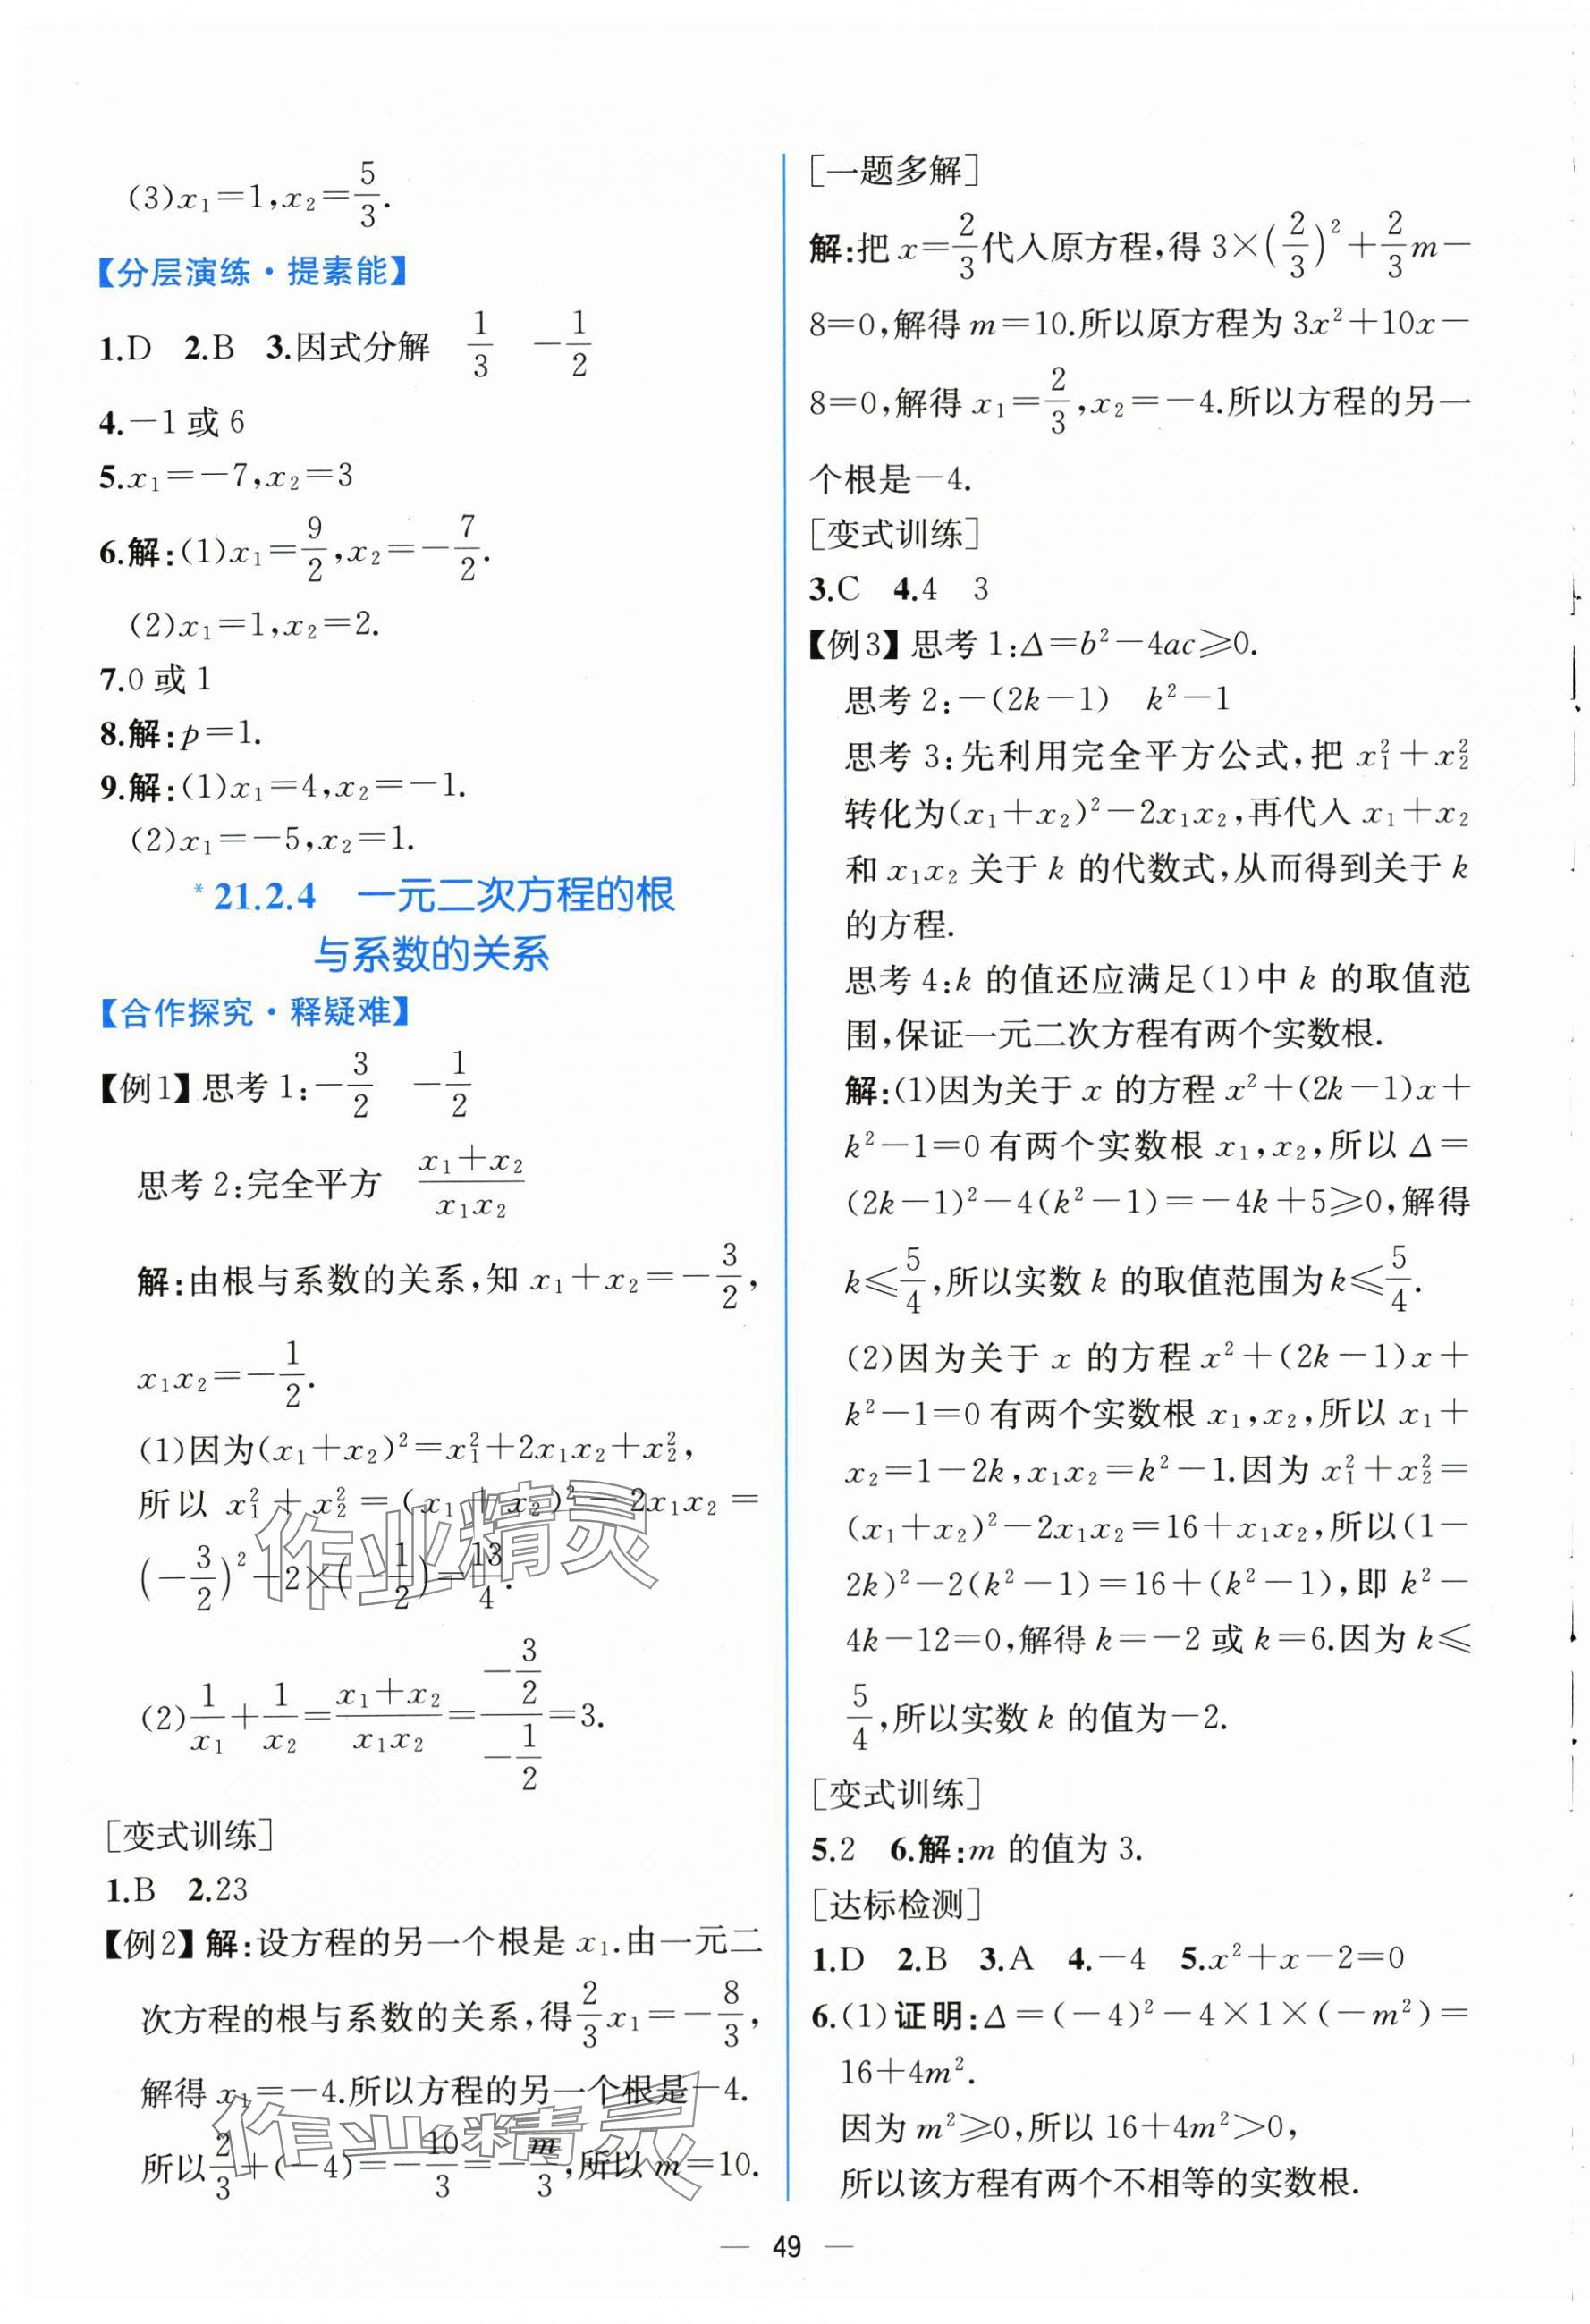 (3)x₁=1,x₂=5/3.
【分层演练·提素能】
1.D 2.B 3.因式分解 1/3 -1/2
4.-1 或 6
5.x₁=-7,x₂=3
6.解:(1)x₁=9/2,x₂=-7/2.
(2)x₁=1,x₂=2.
7.0 或 1
8.解:p=1.
9.解:(1)x₁=4,x₂=-1.
(2)x₁=-5,x₂=1.
*21.2.4 一元二次方程的根
与系数的关系
【合作探究·释疑难】
【例1】思考 1:-3/2 -1/2
思考 2:完全平方 (x₁+x₂)/(x₁x₂)
解:由根与系数的关系,知 x₁+x₂=-3/2,
x₁x₂=-1/2.
(1)因为(x₁+x₂)²=x₁²+2x₁x₂+x₂²,
所以 x₁²+x₂²=(x₁+x₂)²-2x₁x₂=
(-3/2)²-2×(-1/2)=13/4.
(2)1/x₁+1/x₂=(x₁+x₂)/(x₁x₂)=(-3/2)/(-1/2)=3.
[变式训练]
1.B 2.23
【例2】解:设方程的另一个根是 x₁.由一元二
次方程的根与系数的关系,得2/3x₁=-8/3,
解得 x₁=-4.所以方程的另一个根是-4.
所以2/3+(-4)=-10/3=-m/3,所以 m=10.
[一题多解]
解:把 x=2/3代入原方程,得 3×(2/3)²+2/3m-
8=0,解得 m=10.所以原方程为 3x²+10x-
8=0,解得 x₁=2/3,x₂=-4.所以方程的另一
个根是-4.
[变式训练]
3.C 4.4 3
【例3】思考 1:Δ=b²-4ac≥0.
思考 2:-(2k-1) k²-1
思考 3:先利用完全平方公式,把 x₁²+x₂²
转化为(x₁+x₂)²-2x₁x₂,再代入 x₁+x₂
和 x₁x₂ 关于 k 的代数式,从而得到关于 k
的方程.
思考 4:k 的值还应满足(1)中 k 的取值范
围,保证一元二次方程有两个实数根.
解:(1)因为关于 x 的方程 x²+(2k-1)x+
k²-1=0 有两个实数根 x₁,x₂,所以 Δ=
(2k-1)²-4(k²-1)=-4k+5≥0,解得
k≤5/4,所以实数 k 的取值范围为k≤5/4.
(2)因为关于 x 的方程 x²+(2k-1)x+
k²-1=0 有两个实数根 x₁,x₂,所以 x₁+
x₂=1-2k,x₁x₂=k²-1.因为 x₁²+x₂²=
(x₁+x₂)²-2x₁x₂=16+x₁x₂,所以(1-
2k)²-2(k²-1)=16+(k²-1),即 k²-
4k-12=0,解得 k=-2 或 k=6.因为 k≤
5/4,所以实数 k 的值为-2.
[变式训练]
5.2 6.解:m 的值为 3.
[达标检测]
1.D 2.B 3.A 4.-4 5.x²+x-2=0
6.(1)证明:Δ=(-4)²-4×1×(-m²)=
16+4m².
因为 m²≥0,所以 16+4m²>0,
所以该方程有两个不相等的实数根.
— 49 —
作业精灵
作业精灵